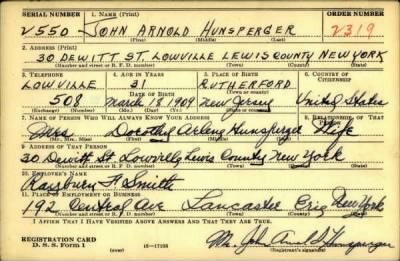 SERIAL NUMBER 1. NAME (Print) ORDER NUMBER
V550 JOHN ARNOLD HUNSPERGER V2319
(First) (Middle) (Last)
2. ADDRESS (Print)
30 DEWITT ST LOWVILLE LEWIS COUNTY NEW YORK
(Number and street or R. F. D. number) (Town) (County) (State)
3. TELEPHONE 4. AGE IN YEARS 5. PLACE OF BIRTH 6. COUNTRY OF CITIZENSHIP
LOWVILLE 31 RUTHERFORD
DATE OF BIRTH (Town or county)
508 March 18, 1909 New Jersey United States
(Exchange) (Number) (Mo.) (Day) (Yr.) (State or country)
7. NAME OF PERSON WHO WILL ALWAYS KNOW YOUR ADDRESS 8. RELATIONSHIP OF THAT PERSON
Mrs Dorothy Arlene Hunsperger Wife
(Mr., Mrs., Miss) (First) (Middle) (Last)
9. ADDRESS OF THAT PERSON
30 Dewitt St Lowville Lewis County New York
(Number and street or R. F. D. number) (Town) (County) (State)
10. EMPLOYER'S NAME
F. Smith
11. PLACE OF EMPLOYMENT OR BUSINESS
192 Central Ave Lancaster Erie New York
(Number and street or R. F. D. number) (Town) (County) (State)
I AFFIRM THAT I HAVE VERIFIED ABOVE ANSWERS AND THAT THEY ARE TRUE.
REGISTRATION CARD
D. S. S. Form 1 (over) 16—17105 Mr. John Arnold Hunsperger
(Registrant's signature)